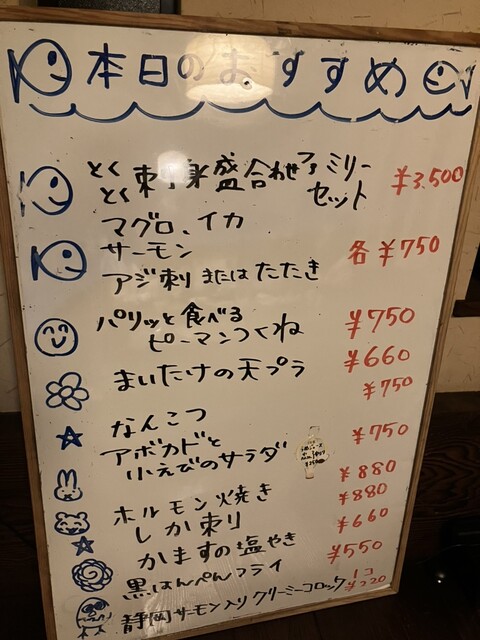 本日のおすすめ
とくとく 刺身盛合わせファミリーセット ¥3,500
マグロ、イカ
サーモン 各¥750
アジ刺またはたたき
パリッと食べる
ピーマンつくね ¥750
¥660
まいたけの天プラ ¥750
なんこつ ¥750
アボカドと
小えびのサラダ ¥880
ホルモン焼き ¥880
しか刺り ¥660
かますの塩やき ¥550
黒はんぺんフライ 1コ
静岡サーモン入りクリーミーコロッケ ¥220